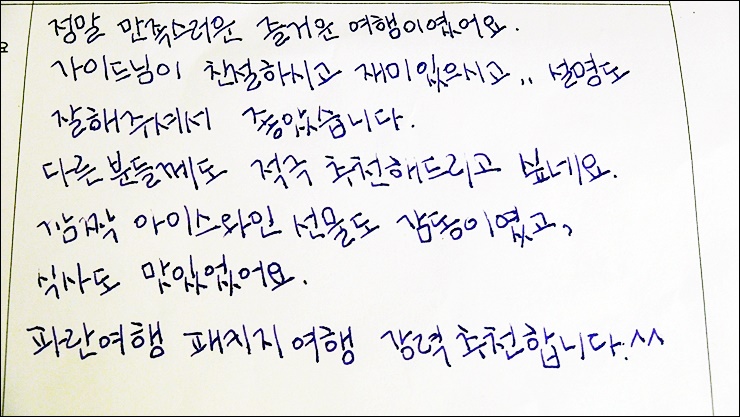 정말 만족스러운 즐거운 여행이였어요.
가이드님이 친절하시고 재미있으시고.. 설명도
잘해주셔서 좋았습니다.
다른분들께도 적극 추천해드리고 싶네요.
깜짝 아이스와인 선물도 감동이였고,
식사도 맛있었어요.
파란여행 패키지여행 강력추천합니다.^^